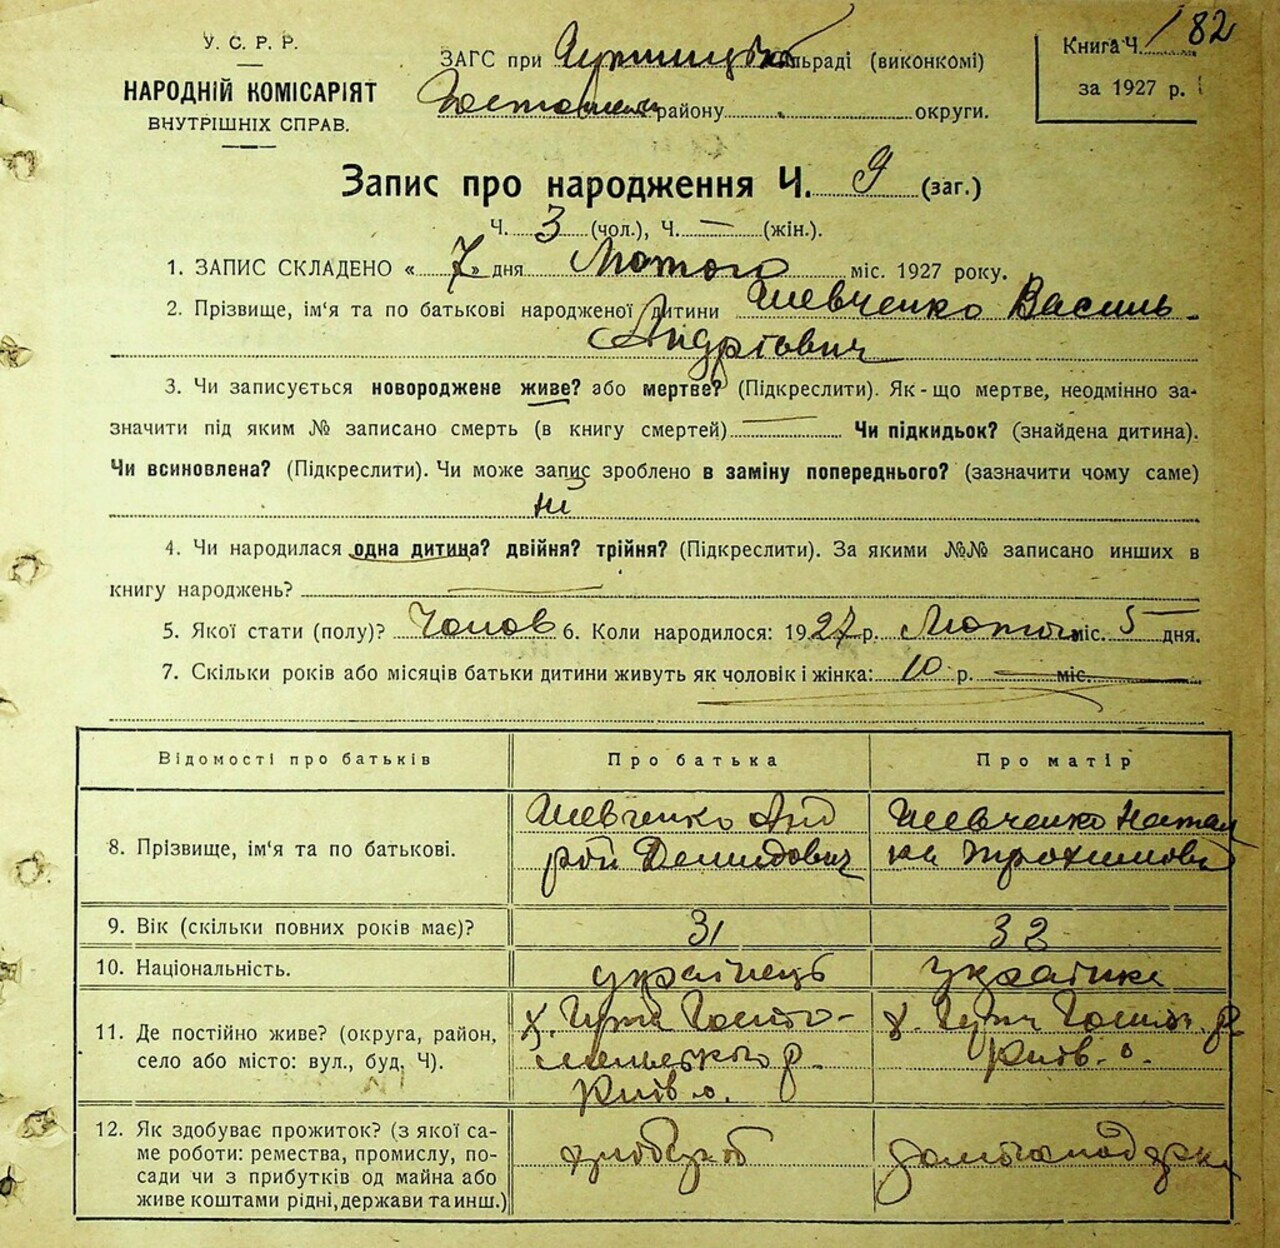 У. С. Р. Р.
НАРОДНІЙ КОМІСАРІЯТ
ВНУТРІШНІХ СПРАВ.
ЗАГС при сільраді (виконкомі)
району округи.
Книга Ч. 1 82
за 1927 р.
Запис про народження Ч. 9 (заг.)
Ч. 3 (чол.), Ч. — (жін.).
1. ЗАПИС СКЛАДЕНО «7» дня Лютого міс. 1927 року.
2. Прізвище, ім'я та по батькові народженої дитини Шевченко Василь
Андрієвич
3. Чи записується новороджене живе? або мертве? (Підкреслити). Як-що мертве, неодмінно за-
значити під яким № записано смерть (в книгу смертей) — Чи підкидьок? (знайдена дитина).
Чи всиновлена? (Підкреслити). Чи може запис зроблено в заміну попереднього? (зазначити чому саме)
Ні
4. Чи народилася одна дитина? двійня? трійня? (Підкреслити). За якими №№ записано инших в
книгу народжень? —
5. Якої стати (полу)? Чолов 6. Коли народилося: 1927 р. Лютого міс. 5 дня.
7. Скільки років або місяців батьки дитини живуть як чоловік і жінка: 10 р. — міс.
Відомості про батьків Про батька Про матір
8. Прізвище, ім'я та по батькові.
Шевченко Анд
рій Демидович
Шевченко Натал
ка Трохимовн
9. Вік (скільки повних років має)? 31 32
10. Національність. українець українка
11. Де постійно живе? (округа, район,
село або місто: вул., буд. Ч).
х. Госто-
мельського р.
Київ о.
х. р.
Київ. о.
12. Як здобуває прожиток? (з якої са-
ме роботи: ремества, промислу, по-
сади чи з прибутків од майна або
живе коштами рідні, держави та инш.)
хлібороб